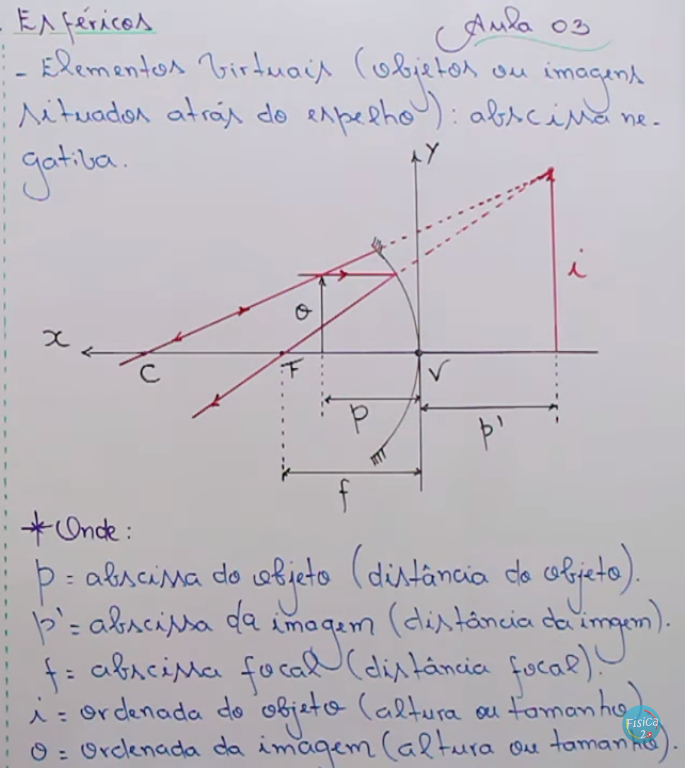 Esféricos
Aula 03
- Elementos virtuais (objetos ou imagens
situados atrás do espelho): abscissa ne-
gativa.
Y
i
o
x
C
F
V
p
p'
f
* Onde:
p = abscissa do objeto (distância do objeto).
p' = abscissa da imagem (distância da imgem).
f = abscissa focal (distância focal).
i = ordenada do objeto (altura ou tamanho)
o = ordenada da imagem (altura ou tamanho).
FISICA
2